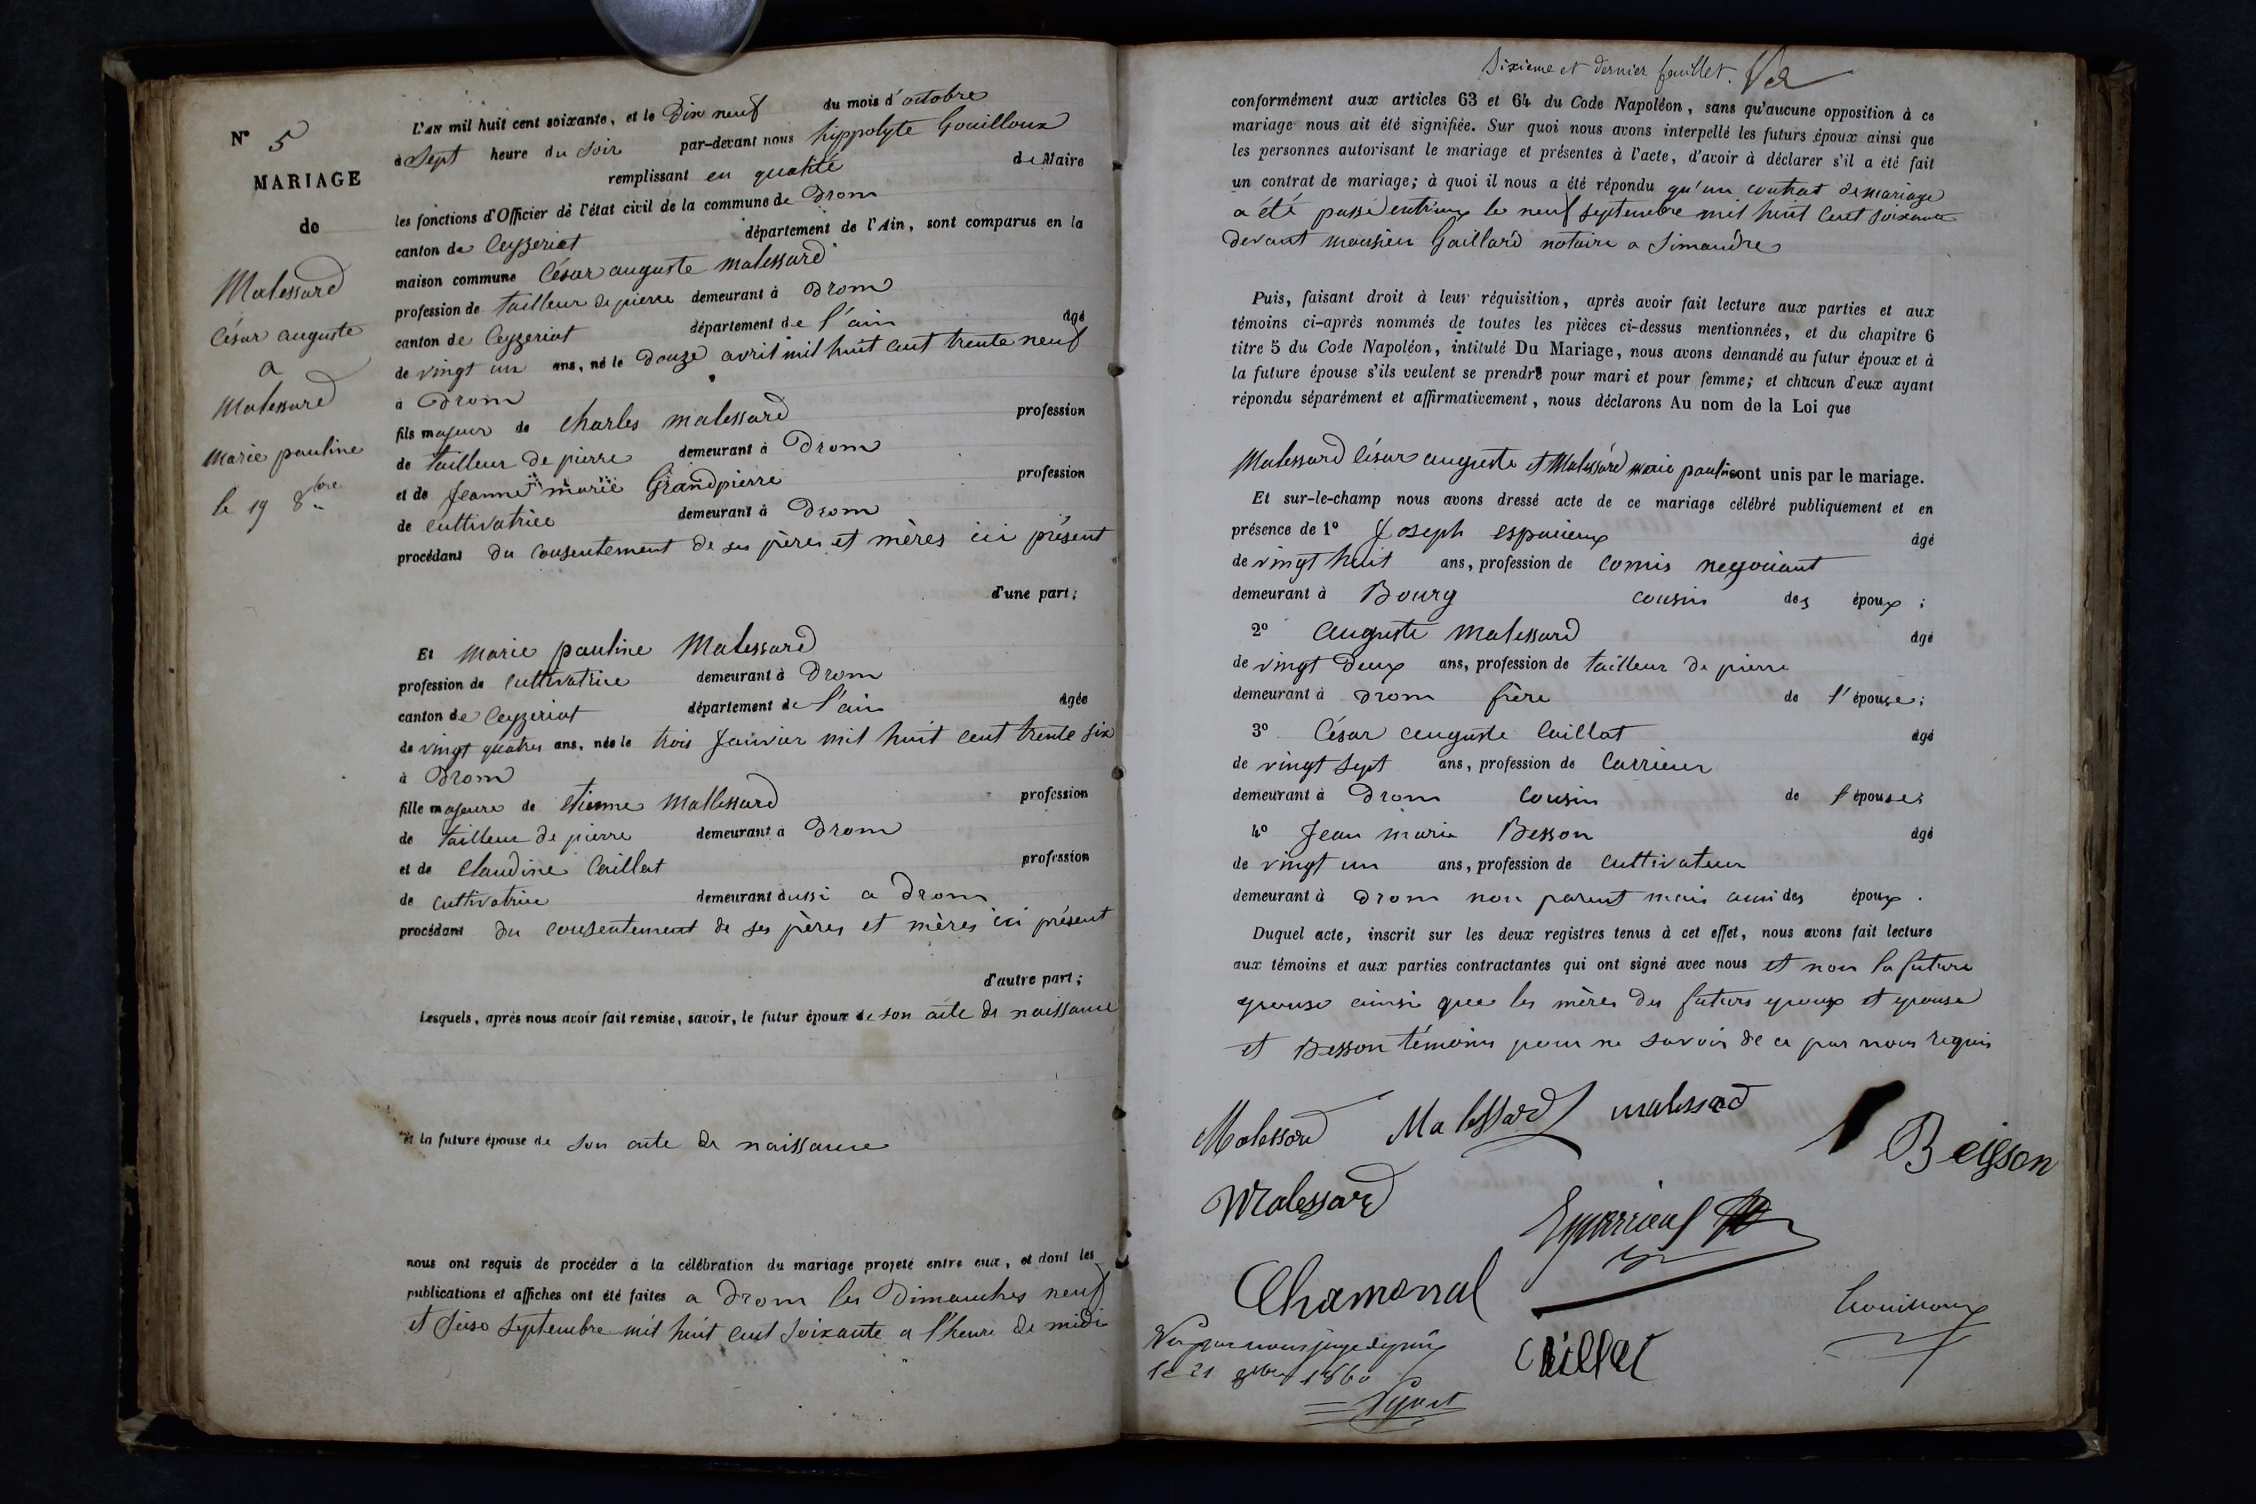 N° 5
MARIAGE
de
Malessard
César auguste
a
Malessard
Marie pauline
le 19 8bre
L'AN mil huit cent soixante, et le Dix neuf du mois d'octobre
à Sept heure du Soir par-devant nous hyppolyte Gouilloux
remplissant en qualité de Maire
les fonctions d'Officier de l'état civil de la commune de Drom
canton de Ceyzeriat département de l'Ain, sont comparus en la
maison commune César auguste malessard
profession de tailleur de pierre demeurant à Drom
canton de Ceyzeriat département de l'ain âgé
de vingt un ans, né le Douze avril mil huit cent trente neuf
à Drom
fils majeur de charles malessard profession
de tailleur de pierre demeurant à Drom
et de Jeanne marie Grandpierre profession
de cultivatrice demeurant à Drom
procédant du consentement de ses pères et mères ici présent
d'une part;
Et marie pauline Malessard
profession de cultivatrice demeurant à Drom
canton de Ceyzeriat département de l'ain âgée
de vingt quatres ans, née le trois Janvier mil huit cent trente six
à Drom
fille majeure de etienne Mallessard profession
de tailleur de pierre demeurant à Drom
et de Claudine Caillat profession
de cultivatrice demeurant aussi a Drom
procédant du consentement de ses pères et mères ici présent
d'autre part;
Lesquels, après nous avoir fait remise, savoir, le futur époux de son acte de naissance
et la future épouse de son acte de naissance
nous ont requis de procéder à la célébration du mariage projeté entre eux, et dont les
publications et affiches ont été faites a Drom les Dimanches neuf
et Seise Septembre mil huit cent Soixante a l'heure de midi
Sixieme et dernier feuillet.
conformément aux articles 63 et 64 du Code Napoléon, sans qu'aucune opposition à ce
mariage nous ait été signifiée. Sur quoi nous avons interpellé les futurs époux ainsi que
les personnes autorisant le mariage et présentes à l'acte, d'avoir à déclarer s'il a été fait
un contrat de mariage; à quoi il nous a été répondu qu'un contrat de mariage
a été passé entr'eux le neuf septembre mil huit cent soixante
devant monsieur Gaillard notaire a Simandre
Puis, faisant droit à leur réquisition, après avoir fait lecture aux parties et aux
témoins ci-après nommés de toutes les pièces ci-dessus mentionnées, et du chapitre 6
titre 5 du Code Napoléon, intitulé Du Mariage, nous avons demandé au futur époux et à
la future épouse s'ils veulent se prendre pour mari et pour femme; et chacun d'eux ayant
répondu séparément et affirmativement, nous déclarons Au nom de la Loi que
Malessard César auguste et Malessard marie pauline sont unis par le mariage.
Et sur-le-champ nous avons dressé acte de ce mariage célébré publiquement et en
présence de 1° Joseph esparieux âgé
de vingt huit ans, profession de comis negociant
demeurant à Bourg cousin des époux;
2° auguste malessard âgé
de vingt deux ans, profession de tailleur de pierre
demeurant à Drom frère de l'épouse;
3° César auguste Caillat âgé
de vingt sept ans, profession de Carrieur
demeurant à Drom Cousin de l'épouse;
4° Jean marie Besson âgé
de vingt un ans, profession de cultivateur
demeurant à Drom non parent mais ami des époux.
Duquel acte, inscrit sur les deux registres tenus à cet effet, nous avons fait lecture
aux témoins et aux parties contractantes qui ont signé avec nous et non la future
epouse ainsi que les mères des futurs epoux et epouse
et Besson témoins pour ne savoir de ce par nous requis
Malessard Malessard malessard
Beisson
Malessard
Chamonal
Caillat
Gouilloux
Vu par nous juge de paix
le 21 1860